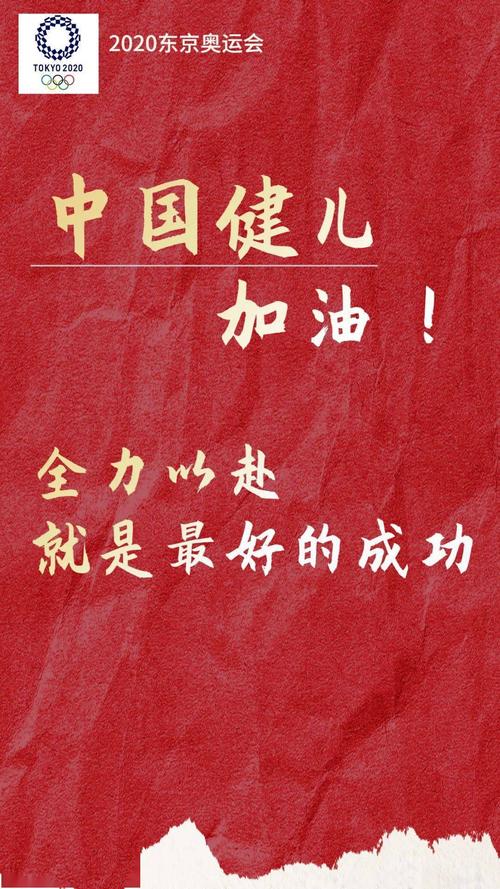 2020东京奥运会
TOKYO 2020
中国健儿
加油！
全力以赴
就是最好的成功